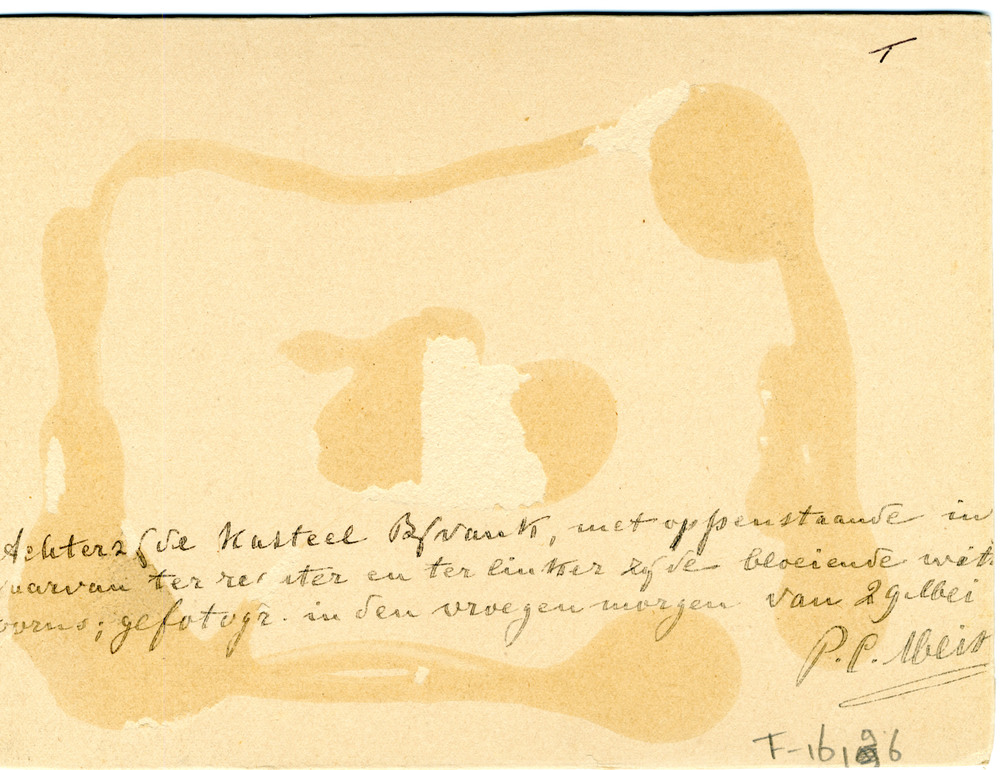 T
Achterzijde Kasteel Bijvank, met oppenstaande in
aarvan ter rechter en ter linker zijde bloeiende wit
oorns; gefotogr. in den vroegen morgen van 29 Mei
P.C.
F-16196